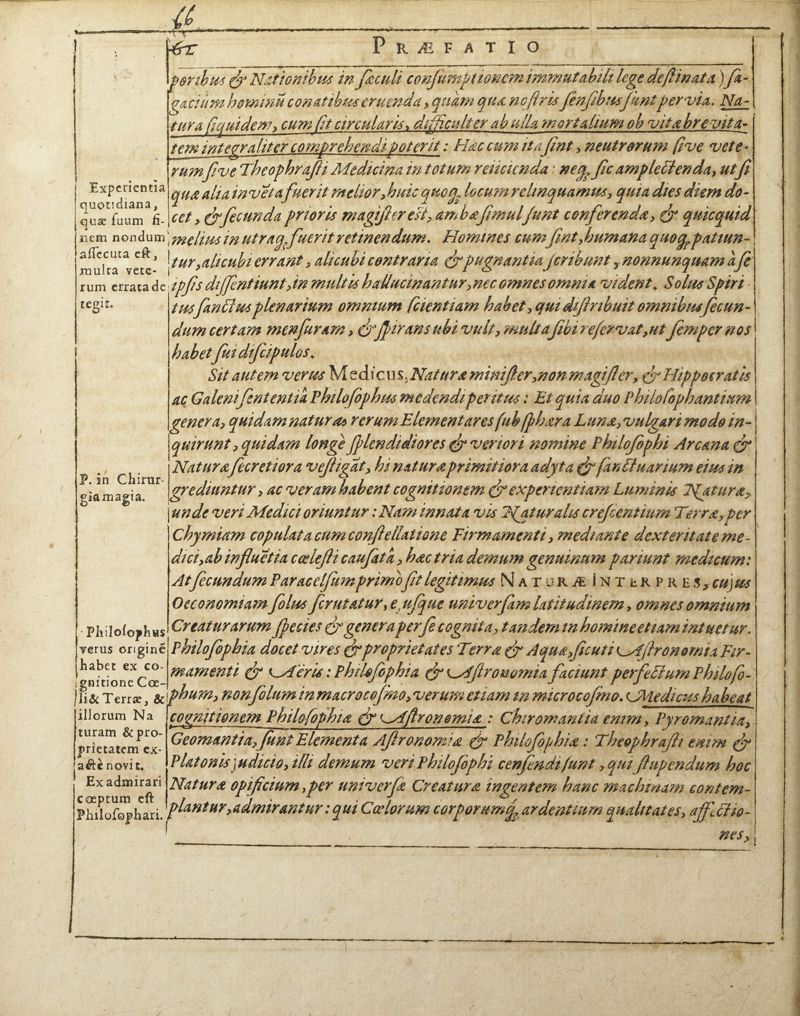 66
62
PRÆFATIO
poribus & Nationibus in sæculi consumptionem immutabili lege destinata ) sa-
gacium hominũ conatibus eruenda, quàm quæ nostris sensibus sunt pervia. Na-
tura siquidem, cum sit circularis, difficulter ab ulla mortalium ob vitæ brevita-
tem integraliter comprehendi poterit: Hæc cum ita sint, neutrorum sive vete-
rum sive Theophrasti Medicina in totum reiicienda: neq; sic amplectenda, ut si
quæ alia invẽta fuerit melior, huic quoq; locum relinquamus, quia dies diem do-
cet, & secunda prioris magister est, ambæ simul sunt conferendæ, & quicquid
melius in utraq; fuerit retinendum. Homines cum sint, humana quoq; patiun-
tur, alicubi errant, alicubi contraria & pugnantia scribunt, nonnunquam à se
ipsis dissentiunt, in multis hallucinantur, nec omnes omnia vident. Solus Spiri
tus sanctus plenarium omnium scientiam habet, qui distribuit omnibus secun-
dum certam mensuram, & spirans ubi vult, multa sibi reservat, ut semper nos
habet sui discipulos.
Sit autem verus Medicus, Naturæ minister, non magister, & Hippocratis
ac Galeni sententiâ Philosophus medendi peritus: Et quia duo Philosophantium
genera, quidam naturas rerum Elementares sub sphæra Lunæ, vulgari modo in-
quirunt, quidam longè splendidiores & veriori nomine Philosophi Arcana &
Naturæ secretiora vestigãt, hi naturæ primitiora adyta & sanctuarium eius in
grediuntur, ac veram habent cognitionem & experientiam Luminis Naturæ,
unde veri Medici oriuntur: Nam innata vis Naturalis crescentium Terræ, per
Chymiam copulata cum constellatione Firmamenti, mediante dexteritate me-
dici, ab influẽtia cœlesti causatâ, hæc tria demum genuinum pariunt medicum:
At secundum Paracelsum primò sit legitimus NATURÆ INTERPRES, cujus
Oeconomiam solus scrutatur, ejusque universam latitudinem, omnes omnium
Creaturarum species & genera per se cognita, tandem in homine etiam intuetur.
Philosophia docet vires & proprietates Terræ & Aquæ, sicuti Astronomia Fir-
mamenti & Aëris: Philosophia & Astronomia faciunt perfectum Philoso-
phum, non solum in macrocosmo, verum etiam in microcosmo. Medicus habeat
cognitionem Philosophiæ & Astronomiæ: Chiromantia enim, Pyromantia,
Geomantia, sunt Elementa Astronomiæ & Philosophiæ: Theophrasti enim &
Platonis judicio, illi demum veri Philosophi censendi sunt, qui stupendum hoc
Naturæ opificium, per universæ Creaturæ ingentem hanc machinam contem-
plantur, admirantur: qui Cœlorum corporumq; ardentium qualitates, affectio-
nes,
Experientia
quotidiana,
quæ suum fi-
nem nondum
assecuta est,
multa vete-
rum errata de
tegit.
P. in Chirur-
gia magia.
Philosophus
verus originẽ
habet ex co-
gnitione Cœ-
li & Terræ, &
illorum Na
turam & pro-
prietatem ex-
actè novit.
Ex admirari
cœptum est
Philosophari.